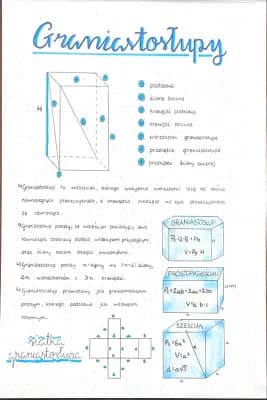 Graniastosłupy
H
podstawa
ściana boczna
krawędź podstawy
krawędź boczna
wierzchołek graniastosłupa
przekątna graniastosłupa
przekątna ściany bocznej
Graniastosłup to wielościan, którego wszystkie wierzchołki leżą na dwóch
równoległych płaszczyznach, a krawędzie nieleżące na tych płaszczyznach
są równoległe.
Graniastosłup prosty to wielościan posiadający dwie
równoległe podstawy będące wielokątami przystającymi,
oraz ściany boczne będące prostokątami.
Graniastosłup prosty n-kątny ma (n+2) ściany,
2n wierzchołków i 3n krawędzi.
Graniastosłup prawidłowy jest graniastosłupem
prostym, którego podstawą jest wielokąt
foremny.
GRANIASTOSŁUP
V = Pp · H
PROSTOPADŁOŚCIAN
Pc = 2ab + 2ac + 2bc
V = a · b · c
SZEŚCIAN
Pc = 6a²
V = a³
d = a√3
siatka
graniastosłupa